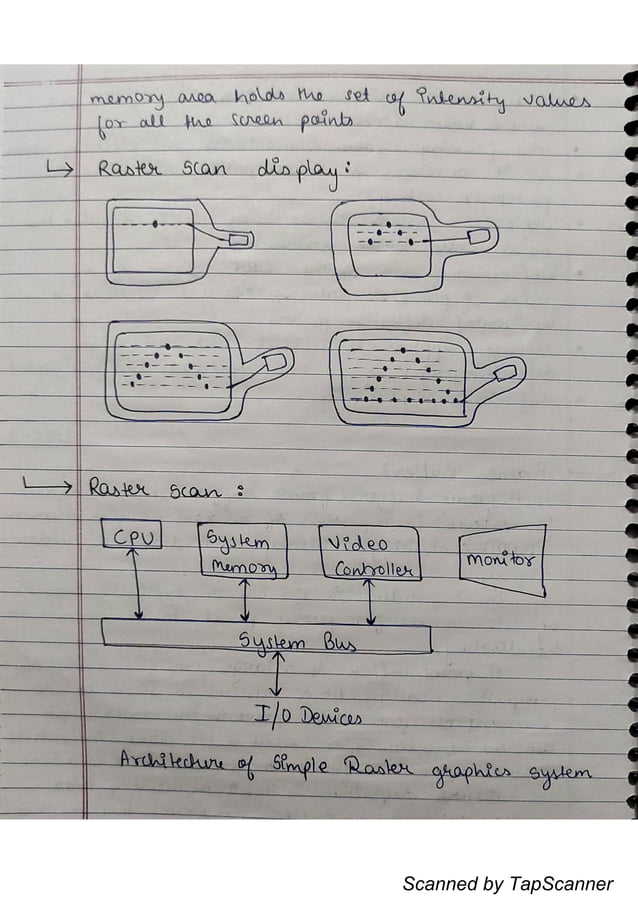 memory area holds the set of intensity values
for all the screen points
↳ Raster scan display:
↳ Raster scan:
CPU
System
Memory
Video
Controller
monitor
System Bus
I/O Devices
Architecture of Simple Raster graphics system
Scanned by TapScanner